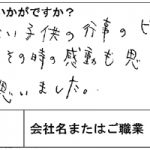 いかがですか?
い子供の行事のビ
その時の感動も思
思いました。
会社名またはご職業